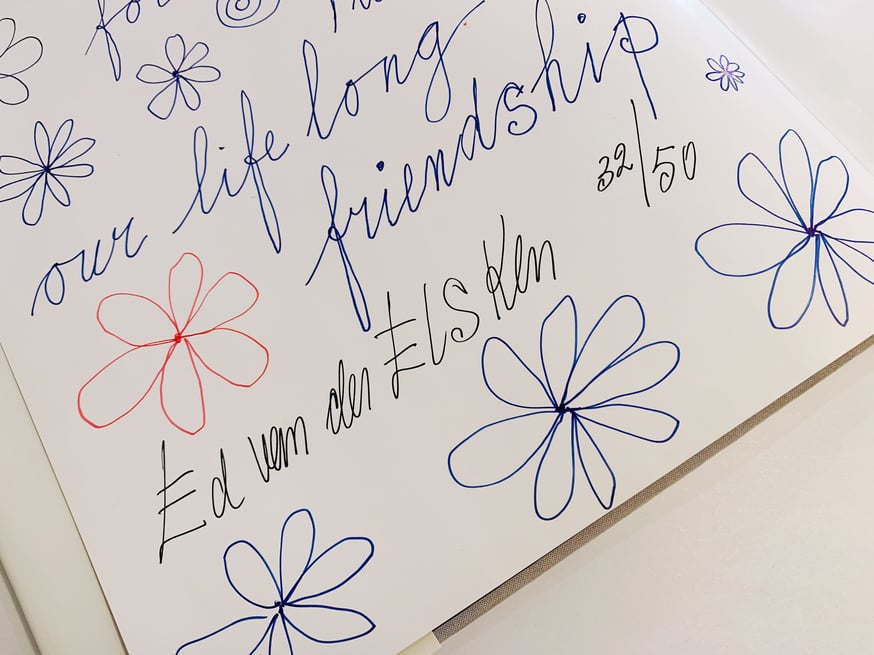 for
our life long
friendship
32/50
Ed van der Elsken